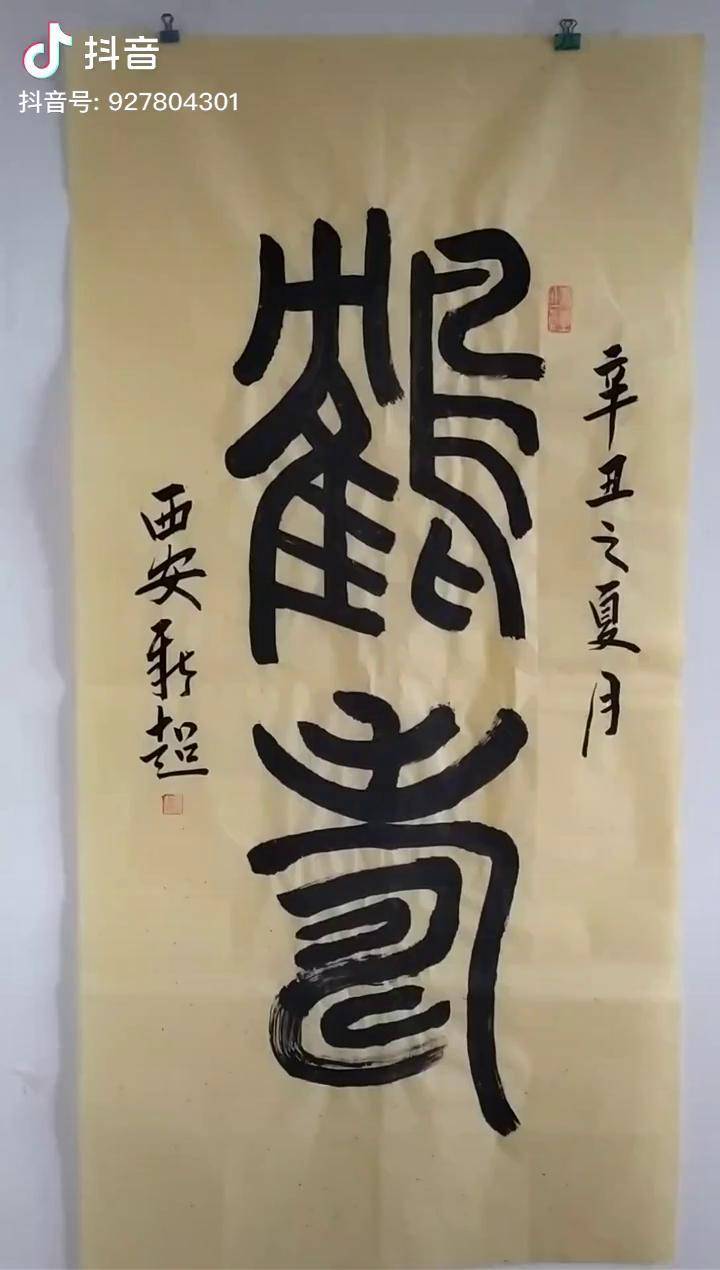 抖音
抖音号: 927804301
鹤寿
辛丑之夏月
西安
超